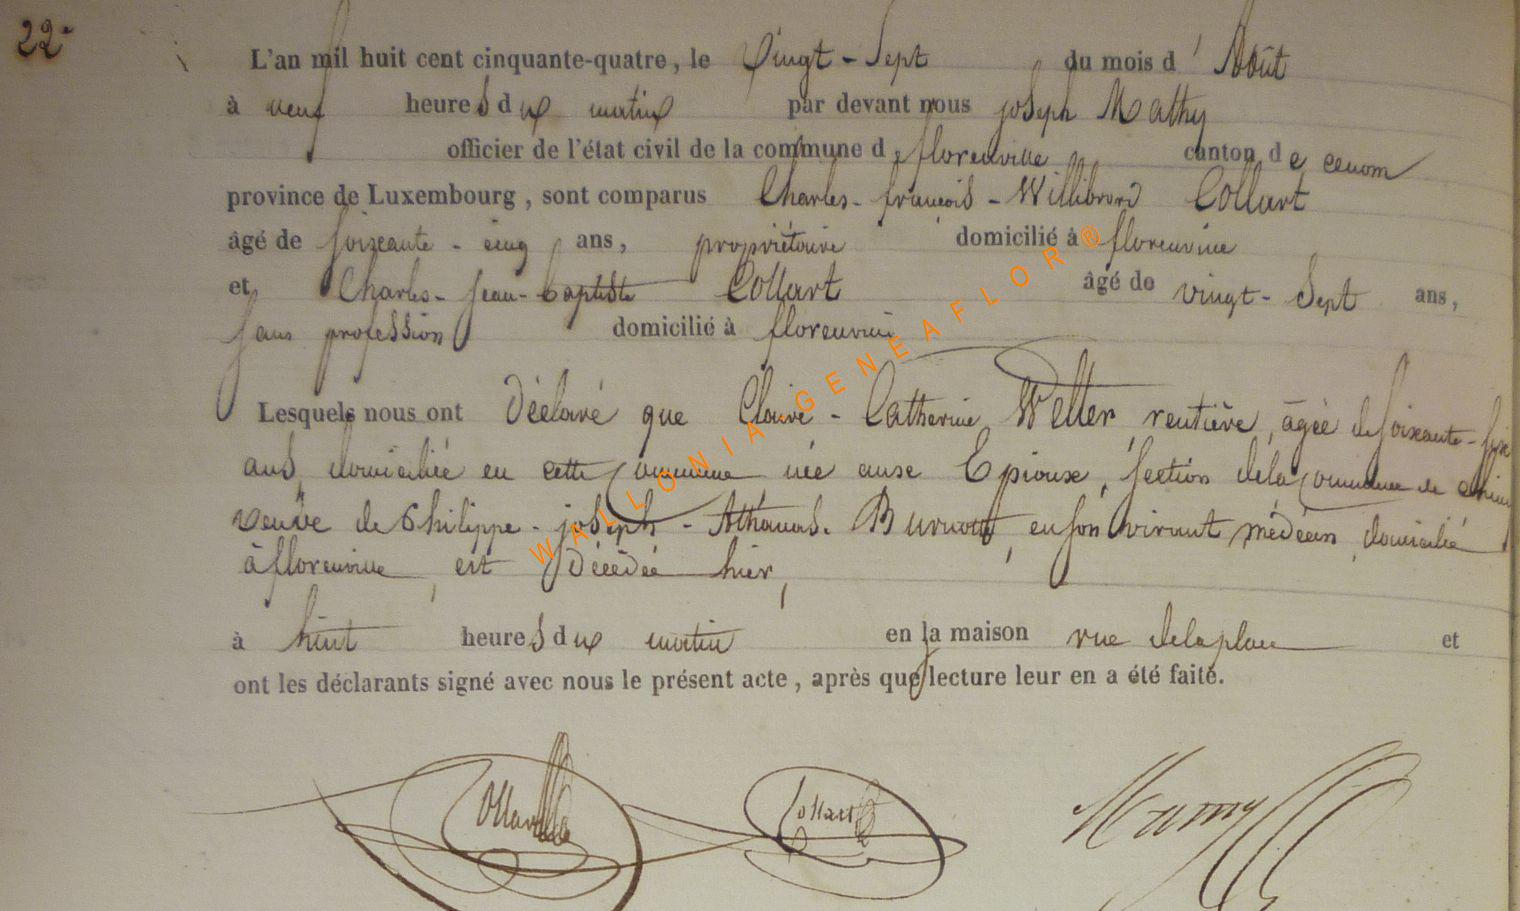 22e
L'an mil huit cent cinquante-quatre, le vingt-sept du mois d'Août
à neuf heures du matin par devant nous joseph Mathy
officier de l'état civil de la commune de florenville canton de ce nom
province de Luxembourg, sont comparus Charles-françois-Willibrord Collart
âgé de soixante-cinq ans, propriétaire domicilié à florenville
et Charles-jean-baptiste Collart âgé de vingt-sept ans,
sans profession domicilié à florenville
Lesquels nous ont Déclaré que Claire-Catherine Welter, rentière, âgée de soixante-six
ans, domiciliée en cette commune née aux Epioux, section dela commune de
veuve de Philippe-joseph-Athanas. Burnotte, en son vivant médecin, domicilié
à florenville, est Décédée hier,
à huit heures du matin en la maison rue dela place et
ont les déclarants signé avec nous le présent acte, après que lecture leur en a été faite.
Collart Collart Mathy
WALLONIA GENEAFLOR®